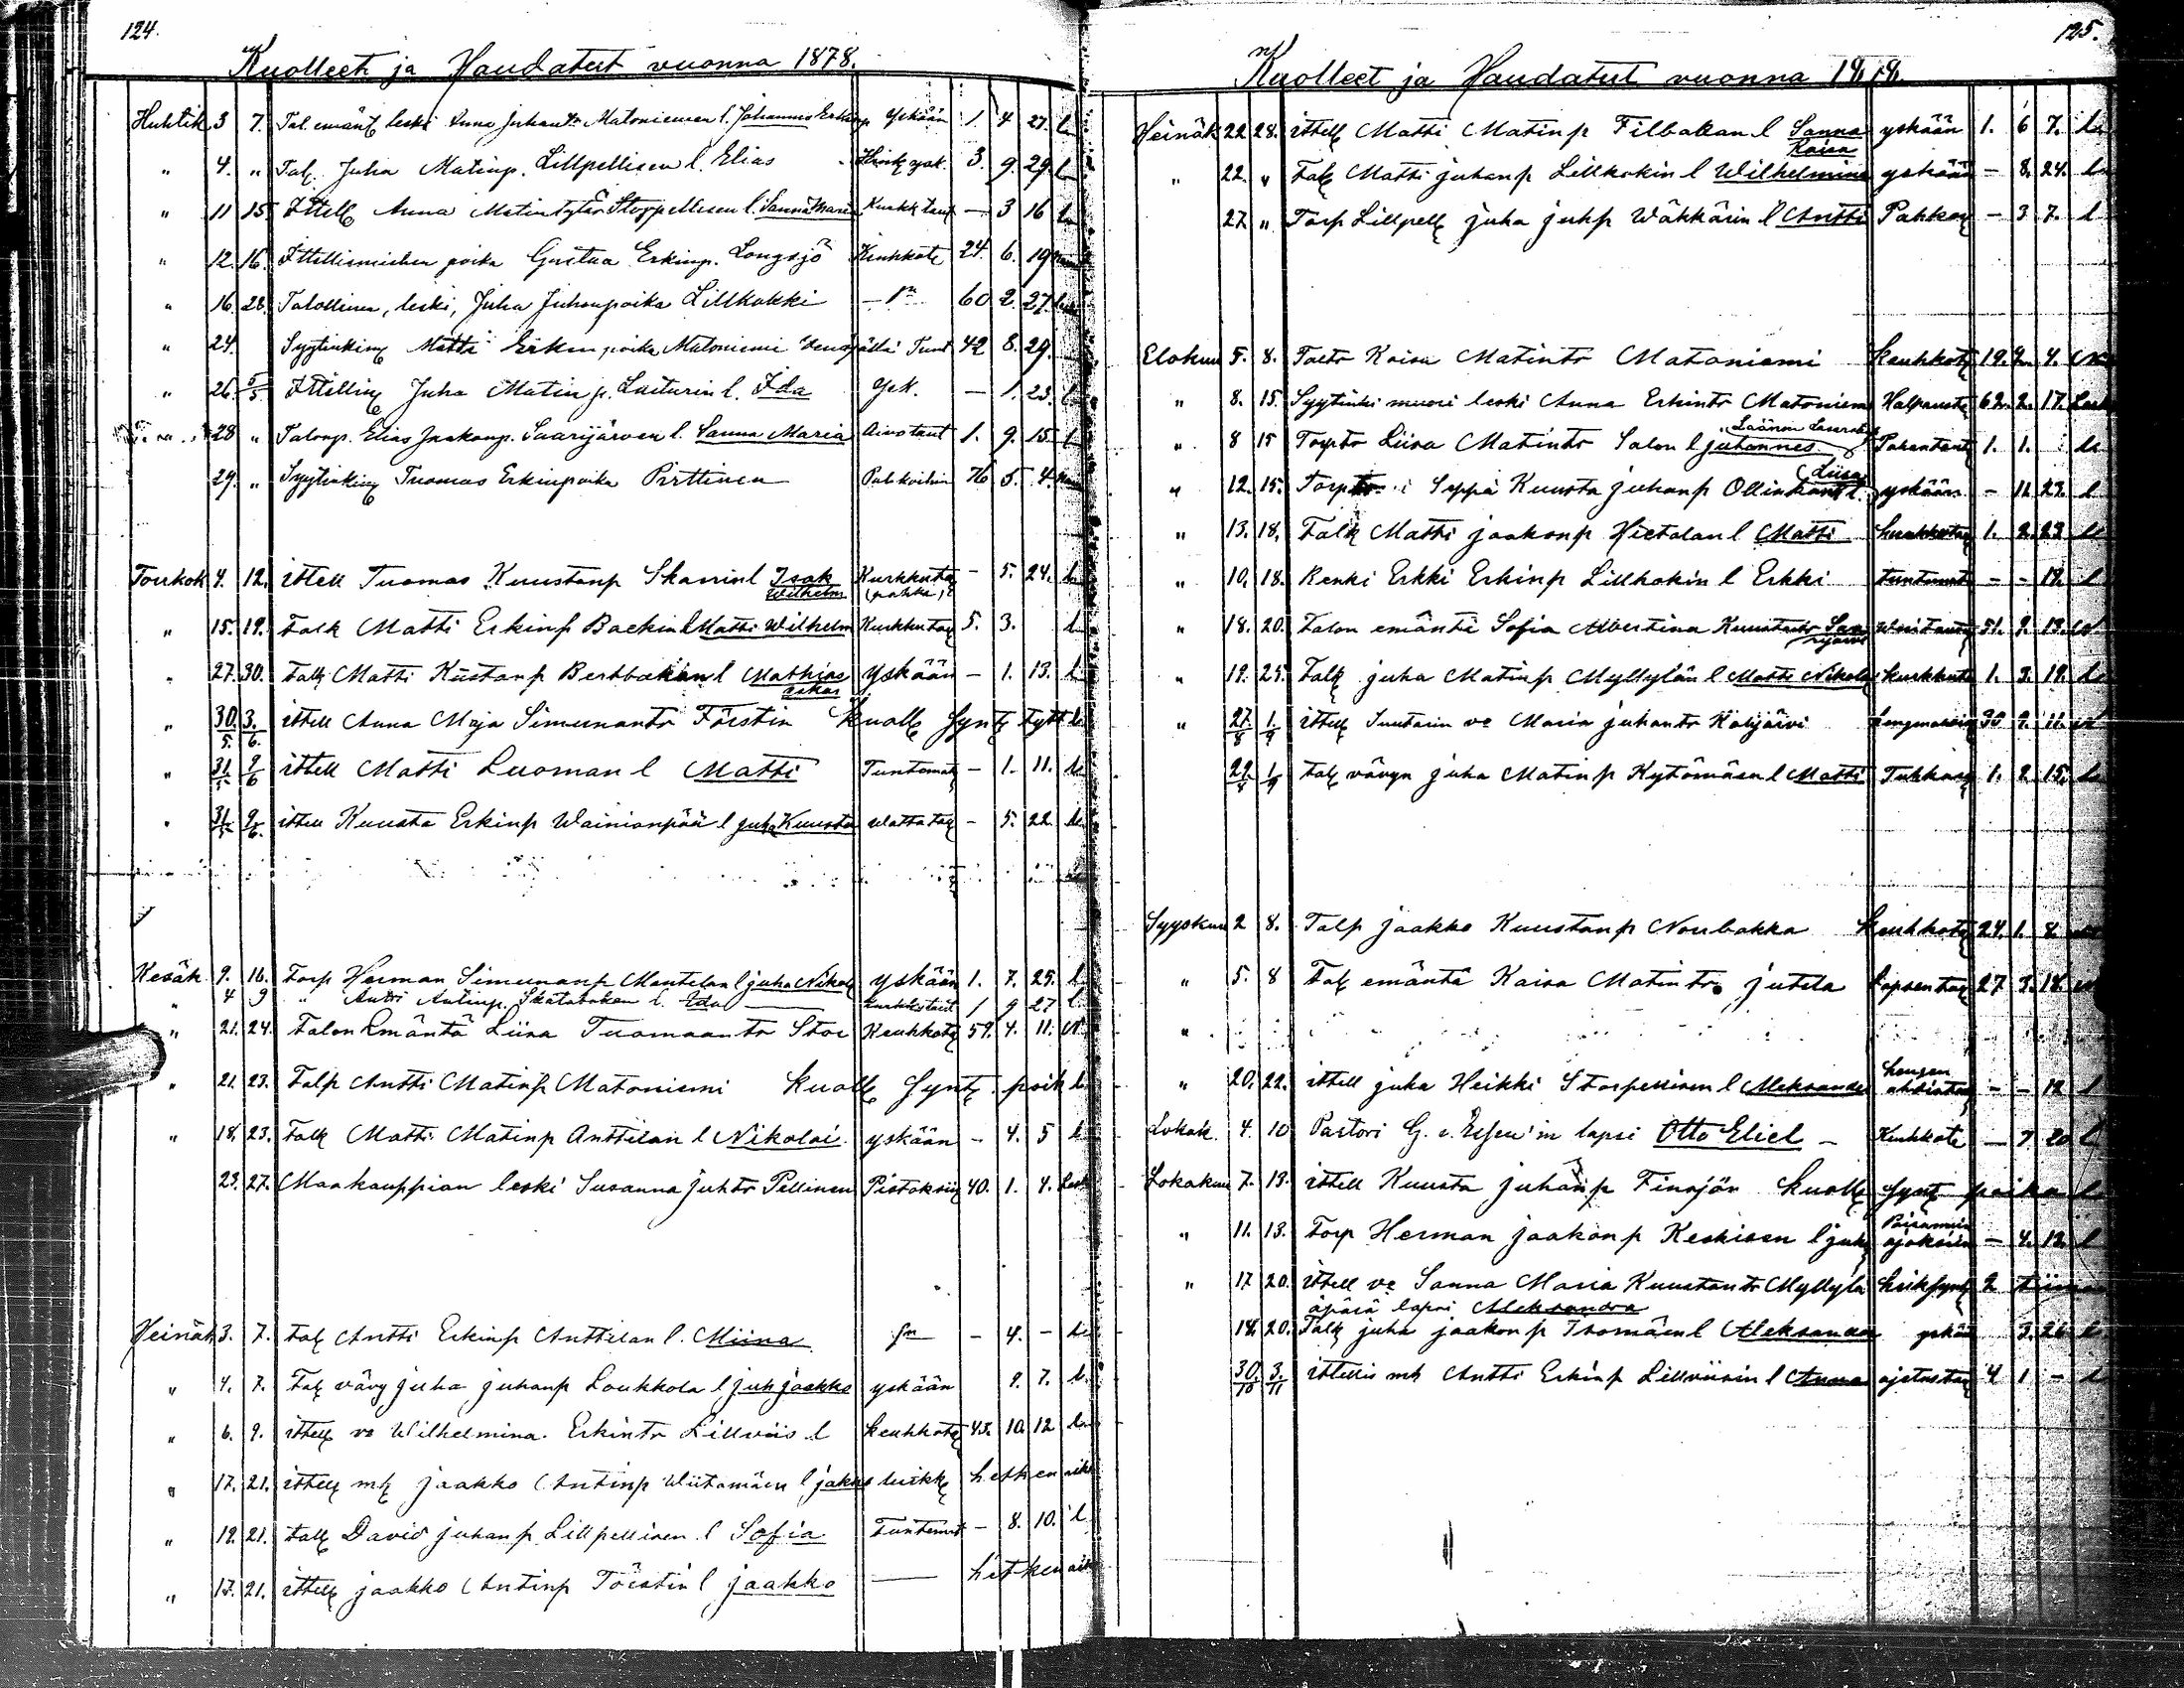 124.
Kuolleet ja Haudatut vuonna 1878.
Huhtik 3 7. Tal. emänt leski Anna Juhant. Matoniemen l. Johannes Erkinp yskään 1. 4 27. l
" 4. " Tal. Juha Matinp. Lillpellisen l. Elias ysk. 3. 9. 29. l
" 11 15 Ittell Anna Matintytär Storpellisen l. Sanna Maria Kurkk taut — 3 16 l
" 12. 16. Ittellismiehen poika Gustaa Erkinp. Longsjö Keuhkote 24. 6. 19
" 16 28. Talollinen, leski, Juha Juhonpoika Lillkakki — 60 2. 27.
" 24. Syytinking Matti Erkinpoika Matoniemi 42 8. 29.
" 26. 5/5 Ittelling Juha Matin p. Luiturin l. Ida Ysk. — 1. 23. l
28 " Talonp. Elias Jaakonp. Saarijärven l. Sanna Maria Aivotaut 1. 9. 15. l
29. " Syytinking Tuomas Erkinpoika Pirttinen 76 5. 4.
Toukok 4. 12. ittell Tuomas Kuustanp Skarin l Isak Wilhelm Kurkkuta (pahka) – 5. 24. l
" 15. 19. Talk Matti Erkinp Backin l Matti Wilhelm Kurkkutau 5. 3. l
" 27. 30. Talk Matti Kustanp Bertbakan l Mathias oskar Yskään – 1. 13. l
" 30/5. 3./6. ittell Anna Maja Simunantr Förstin Kuoll Synt tytt l
" 31/5 9/6 ittell Matti Luoman l Matti Tuntemat – 1. 11. l
" 31/5 9/6. ittell Kuusta Erkinp Wainionpää l juha Kuusta Watta tau – 5. 22. l
Kesäk 9. 16. Torp Herman Simunanp Mantilan l juha Nikol yskään 1. 7. 25. l
" 4 9 " Antti Antinp. l. Eda Kurkkutaut 1 9 27 l
" 21. 24. Talon Emäntä Liisa Tuomaantr Stor Keuhkota 59. 4. 11. W.
" 21. 23. Talp Antti Matinp Matoniemi Kuoll Synt. poik l
" 18. 23. Talk Matti Matinp Anttilan l Nikolai yskään – 4. 5 l
23. 27. Maakauppian leski Susanna juhtr Pellinen Pistoksiin 40. 1. 4. Lesk
Heinäk 3. 7. Talk Antti Erkinp Anttilan l. Miina — – 4. – l
" 4. 7. Talk vävy juha juhanp Loukkola l juh jaakko yskään 9. 7. l
" 6. 9. ittell va Wilhelmina Erkintr Lillviis l keuhkota 43. 10. 12 l
" 17. 21. ittell mk jaakko Antinp Wiitamäen l jaakko heikk hetken aik
" 19. 21. talk David juhanp Lillpellisen l Sofia Tuntemat – 8. 10. l
" 17. 21. ittell jaakko Antinp Törstin l jaakko — hetken aik
125.
Kuolleet ja Haudatut vuonna 1878.
Heinäk 22 28. ittell Matti Matinp Filbakan l Sanna Kaisa yskään 1. 6 7. l
" 22. " Talk Matti juhanp Lillkakin l Wilhelmina yskään – 8. 24. l
27. " Torp Lillpell juha juhp Wähkärin l Antti – 3 7. l
Elokuu 5. 8. Taltr Kaisa Matintr Matoniemi Keuhkota 19. 9. 4.
" 8. 15. Syytinki muori leski Anna Erkintr Matoniem Halpausta 62. 2. 17. Lesk
" 8 15 Torptr Liisa Matintr Salon l juhannes 1. 1. l
" 12. 15. Torp Seppä Kuusta juhanp l. Liisa yskään – 11. 23. l
" 13. 18. Talk Matti jaakonp Hietalan l Matti Kurkkutau 1. 2. 23 l
" 10. 18. Renki Erkki Erkinp Lillkakin l Erkki tuntemat – – 19. l
" 18. 20. Talon emäntä Sofia Albertina Kuustantr 51. 9. 13.
" 19. 25. Talk juha Matinp Myllylän l Matti Nikolai kurkkuta 1. 3. 19. l
" 27/8 1/9 ittell Suutarin va Maria juhantr 9. 11.
29/8 1/9 talk vävyn juha Matinp Kytömäen l Matti 1. 2. 15. l
Syyskuu 2 8. Talp jaakko Kuustanp Norrbakka Keuhkota 24. 1. 8.
" 5. 8 Talk emäntä Kaisa Matintr jutila lapsentau 27 3. 18.
"
" 20. 22. ittell juha Heikki Storpellisen l Aleksander hengen ahdistau – – 12 l
Lokak. 4. 10 Pastori G. v. Essen'in lapsi Otto Eliel – Keuhkote — 7 20 l
Lokakuu 7. 13. ittell Kuusta juhanp Finsjön Kuoll Synt poika l
" 11. 13. Torp Herman jaakonp Keskisen l juha – 4. 12. l
" 17 20. ittell va Sanna Maria Kuustantr Myllylä heiksynt 2 tiima
äpärä lapsi Aleksandra
18. 20. Talk juha jaakonp Isomäen l Aleksander yskä 3. 26. l
30./10 3./11 ittellis mk Antti Erkinp Lillviisin l Anna ajetustau 4 1 – l